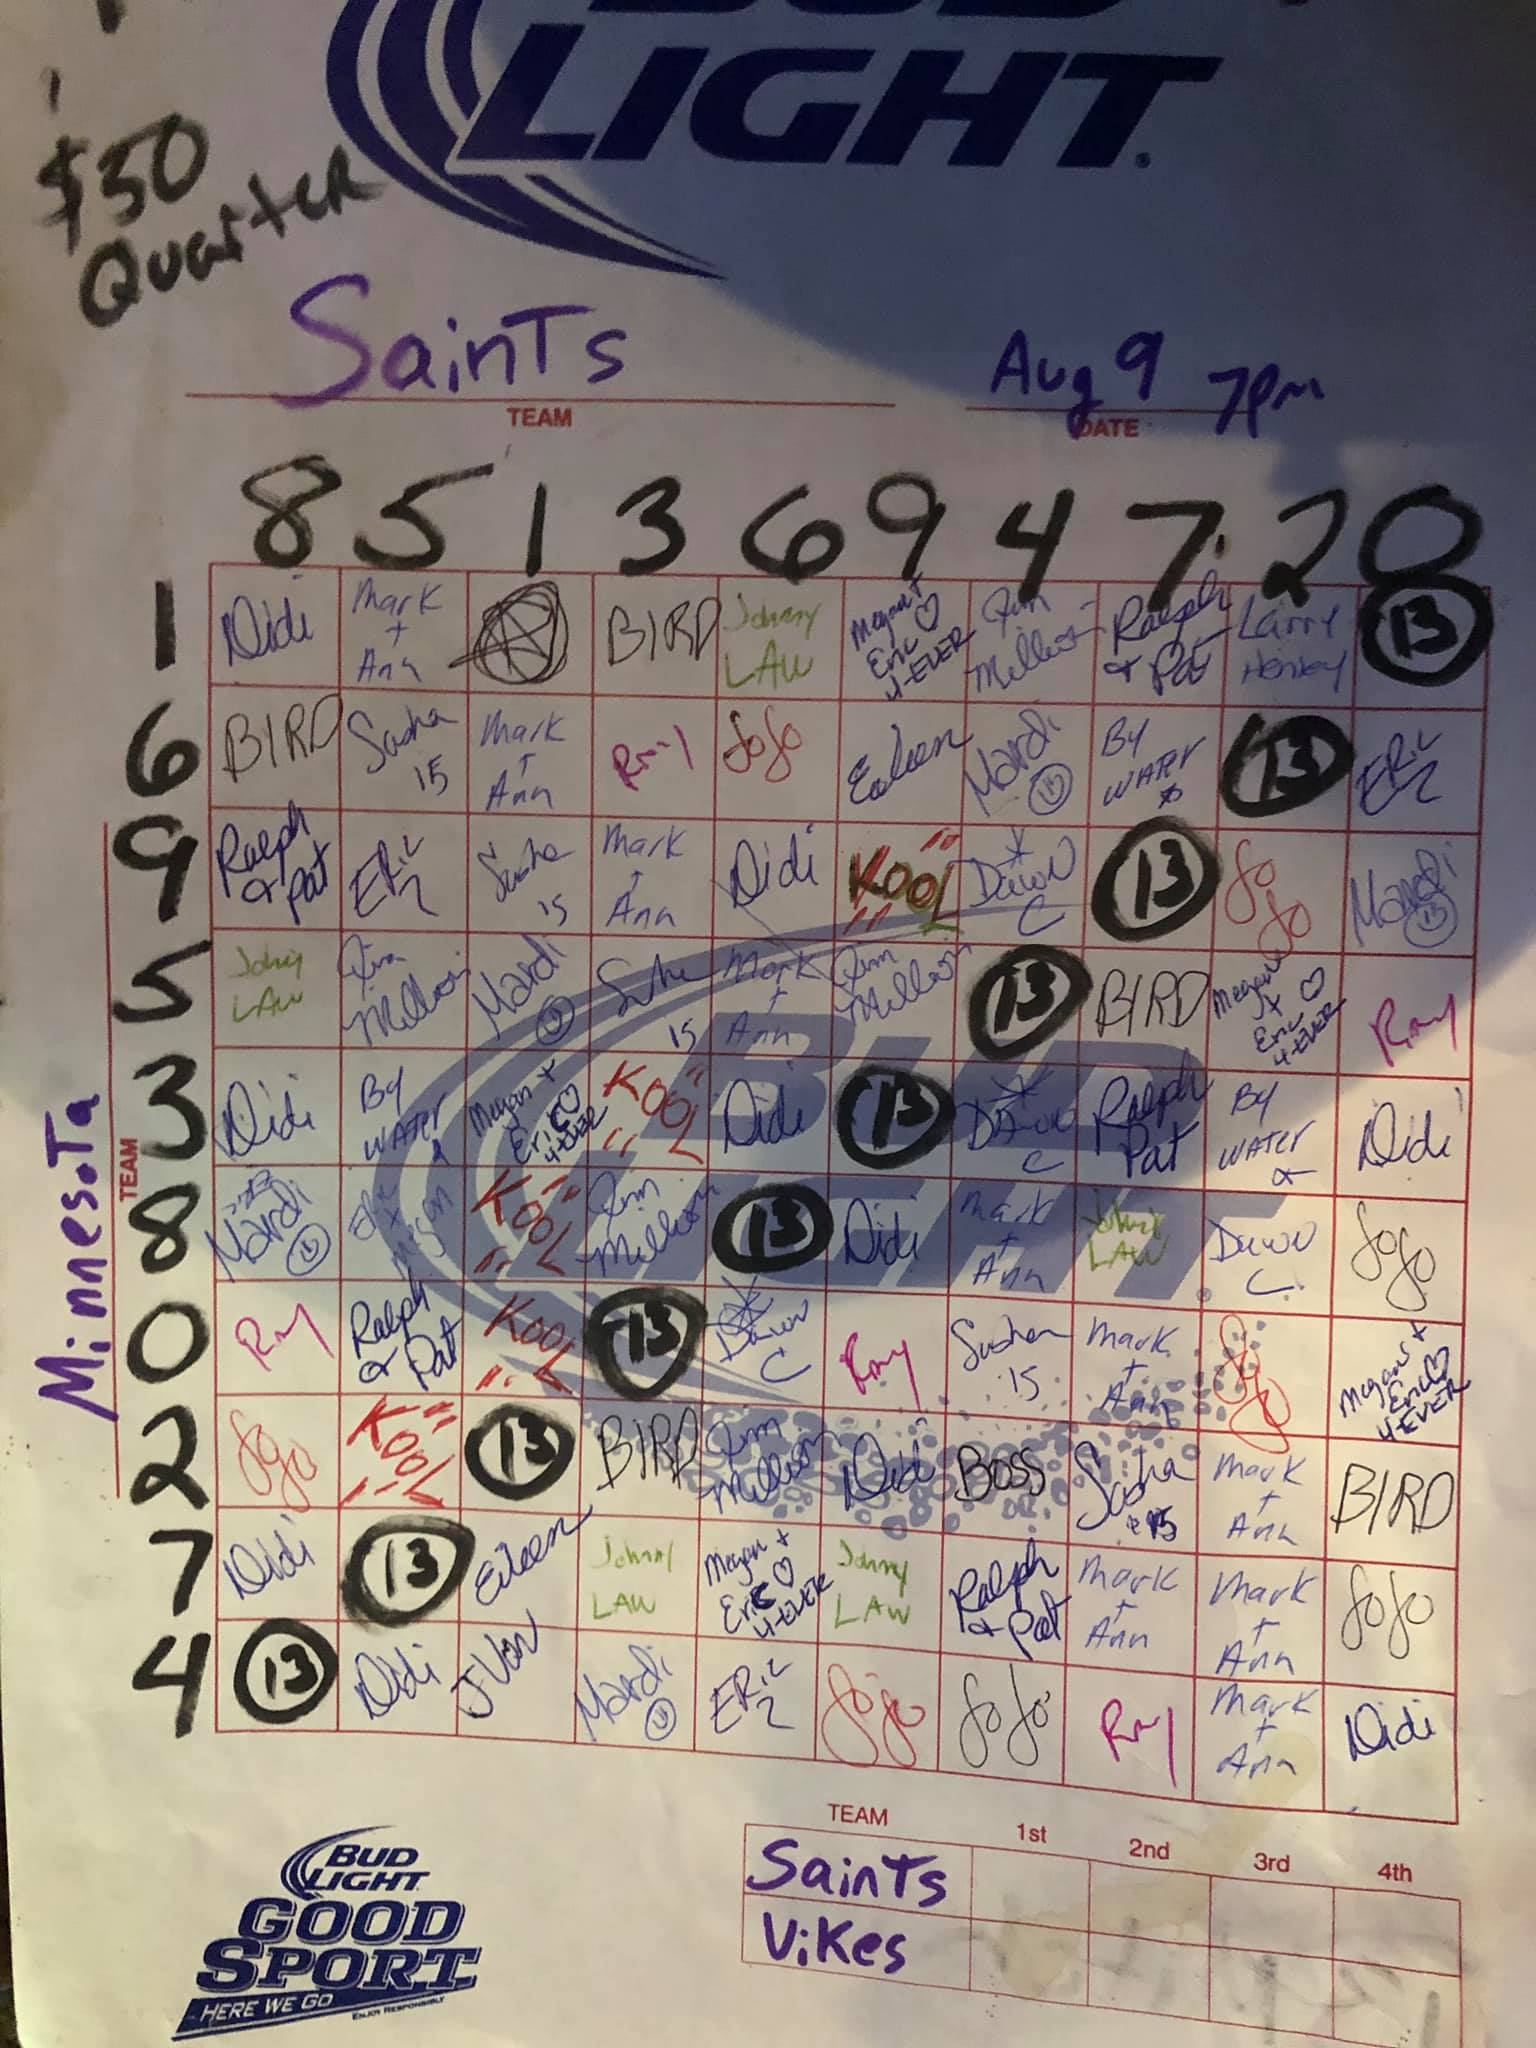 BUD
LIGHT.
$50
Quarter
Saints
TEAM
Aug 9 7pm
DATE
8 5 1 3 6 9 4 7 2 0
1 Didi Mark + Ann BIRD Johnny LAW Megan + Eric 4-EVER Jim Ralph & Pat Larry 13
6 BIRD Sasha 15 Mark + Ann Ray JoJo Eileen Mardi By WATER 13 ERIC 2
9 Ralph & Pat ERIC 2 Sasha 15 Mark + Ann Didi KOOL Dawn C 13 JoJo Mardi
5 Johny LAW Jim Mardi Sasha 15 Mark + Ann Jim 13 BIRD Megan + Eric 4-EVER Ray
3 Didi By WATER Megan + Eric 4-EVER KOOL Didi 13 Dawn C Ralph Pat By WATER Didi
8 Mardi KOOL Jim 13 Didi Mark + Ann Johnny LAW Dawn C JoJo
0 Ray Ralph & Pat KOOL 13 Dawn C Ray Sasha 15 Mark + Ann JoJo Megan + Eric 4-EVER
2 JoJo KOOL 13 BIRD Jim Didi BOSS Sasha 15 Mark + Ann BIRD
7 Didi 13 Eileen Johnny LAW Megan + Eric 4-EVER Johnny LAW Ralph & Pat Mark + Ann Mark + Ann JoJo
4 13 Didi J Von Mardi ERIC 2 JoJo JoJo Ray Mark + Ann Didi
Minnesota
TEAM
BUD LIGHT
TEAM 1st 2nd 3rd 4th
Saints
Vikes
BUD
LIGHT
GOOD
SPORT
HERE WE GO
ENJOY RESPONSIBLY